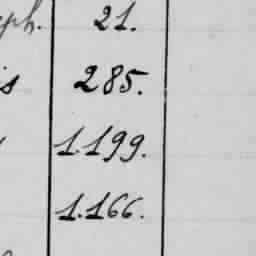 ph. 21.
is 285.
1.199.
1.166.